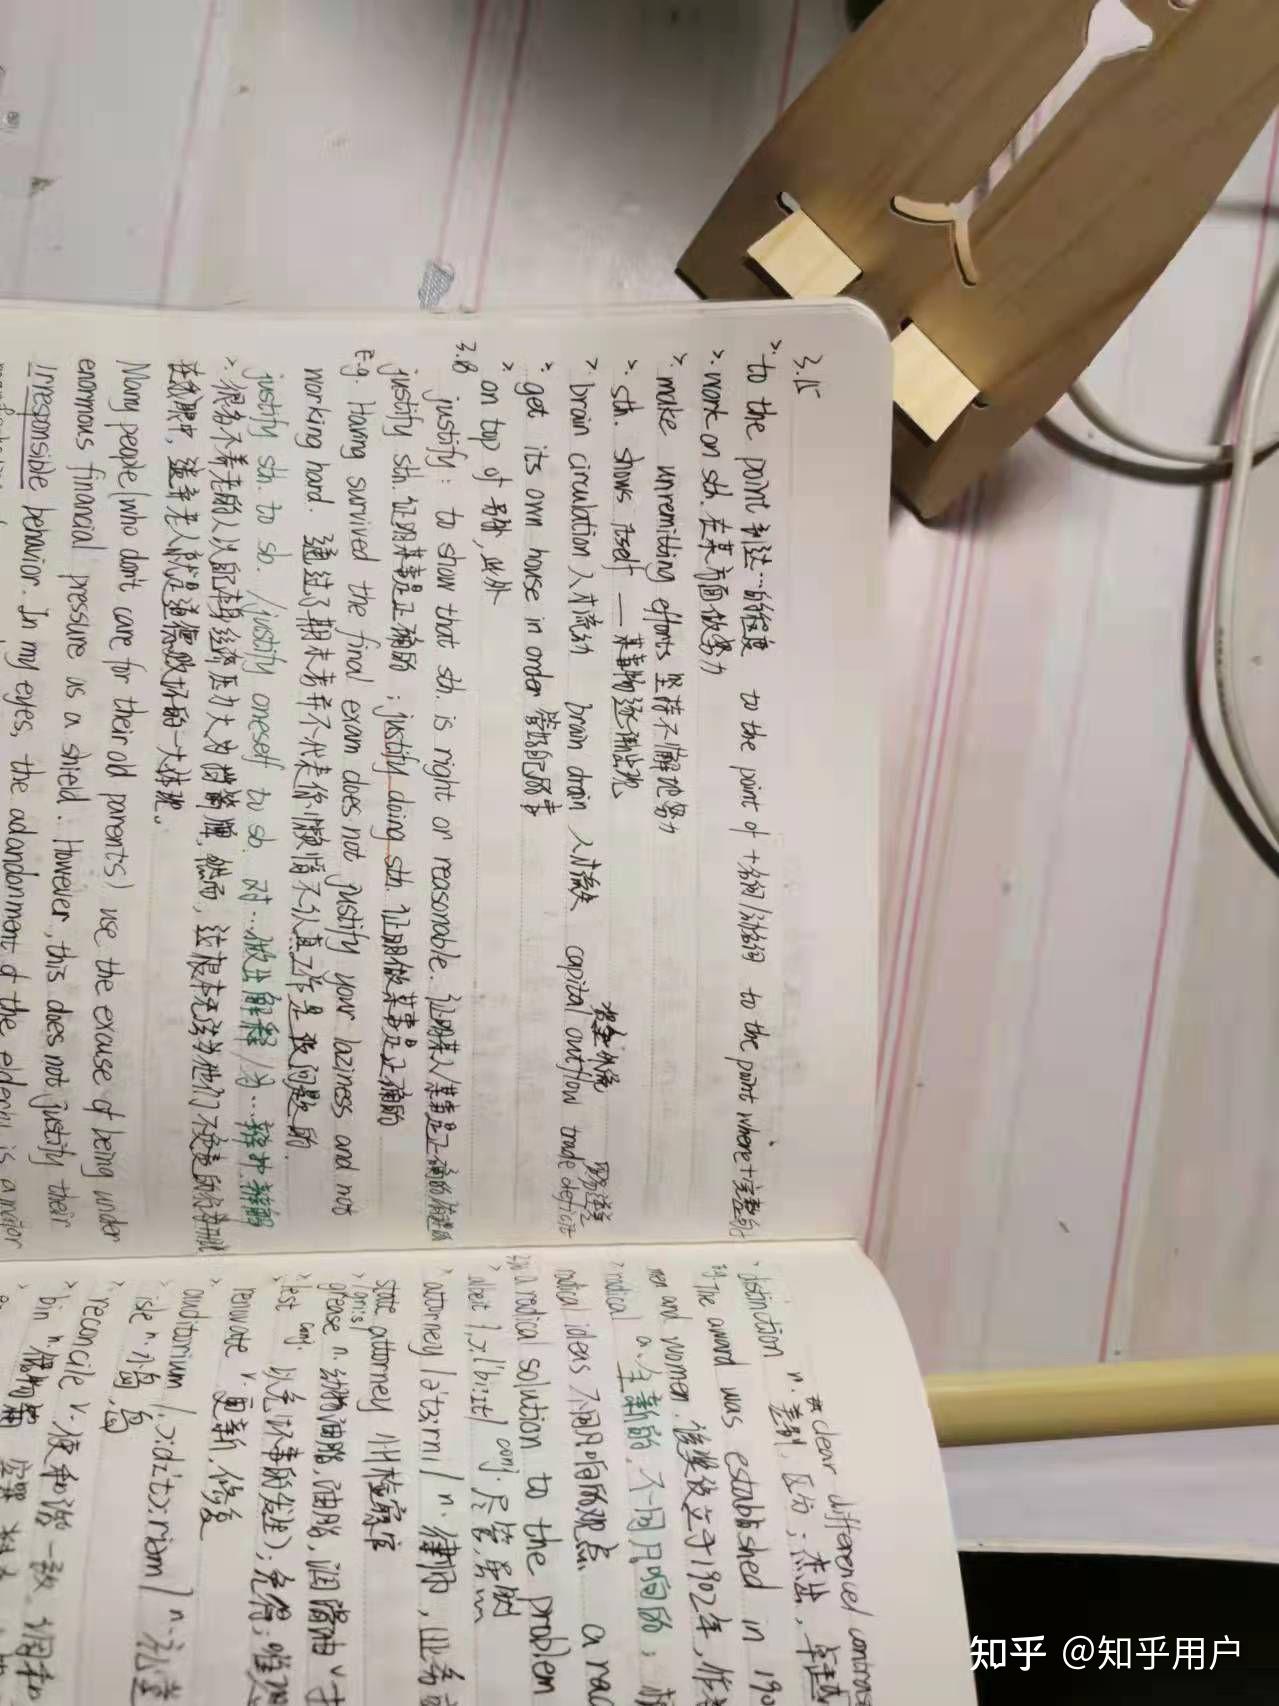 3.15
to the point 到达…的程度 to the point of +名词/动名词 to the point where+完整句
work on sth. 在某方面做努力
make unremitting efforts 坚持不懈地努力
sth. shows itself — 某事物逐渐出现
brain circulation 人才流动 brain drain 人才流失 capital outflow 资金外流 trade deficit
get its own house in order 管好自己的事
on top of 除此外
3.18
justify: to show that sth. is right or reasonable. 证明某人/某事是正确的
justify sth. 证明某事是正确的; justify doing sth. 证明做某事是正确的
E.g. Having survived the final exam does not justify your laziness and not
working hard. 通过了期末考并不代表你懒惰不认真工作是没问题的.
justify sth. to sb. /justify oneself to sb. 对…做出解释/为…辩护
很多不养老的人以自身经济压力大为挡箭牌, 然而, 这根本无法为他们不
在我眼中, 遗弃老人就是道德败坏的一大体现。
Many people(who don't care for their old parents) use the excuse of being under
enormous financial pressure as a shield. However, this does not justify their
irresponsible behavior. In my eyes, the adandonment of the elderly is a major
clear difference/ contras
distinction n. 差别, 区分; 杰出, 卓越
The award was established in 190
men and women. 该奖设立于1902年,
radical a. 全新的, 不同凡响的;
radical ideas 不同凡响的观点 a rad
a radical solution to the problem
albeit /ˌɔːlˈbiːɪt/ conj. 尽管, 虽然
attorney /əˈtɜːrni/ n. 律师,
state attorney 州检察官
/griːs/
grease n. 动物油脂, 油脂, 润滑油 v.
lest conj. 以免(坏事的发生); 免得;
renovate v. 更新, 修复
auditorium /ˌɔːdɪˈtɔːriəm/ n. 礼堂
isle n. 小岛, 岛
reconcile v. 使和谐一致 调和
bin n.
知乎 @知乎用户